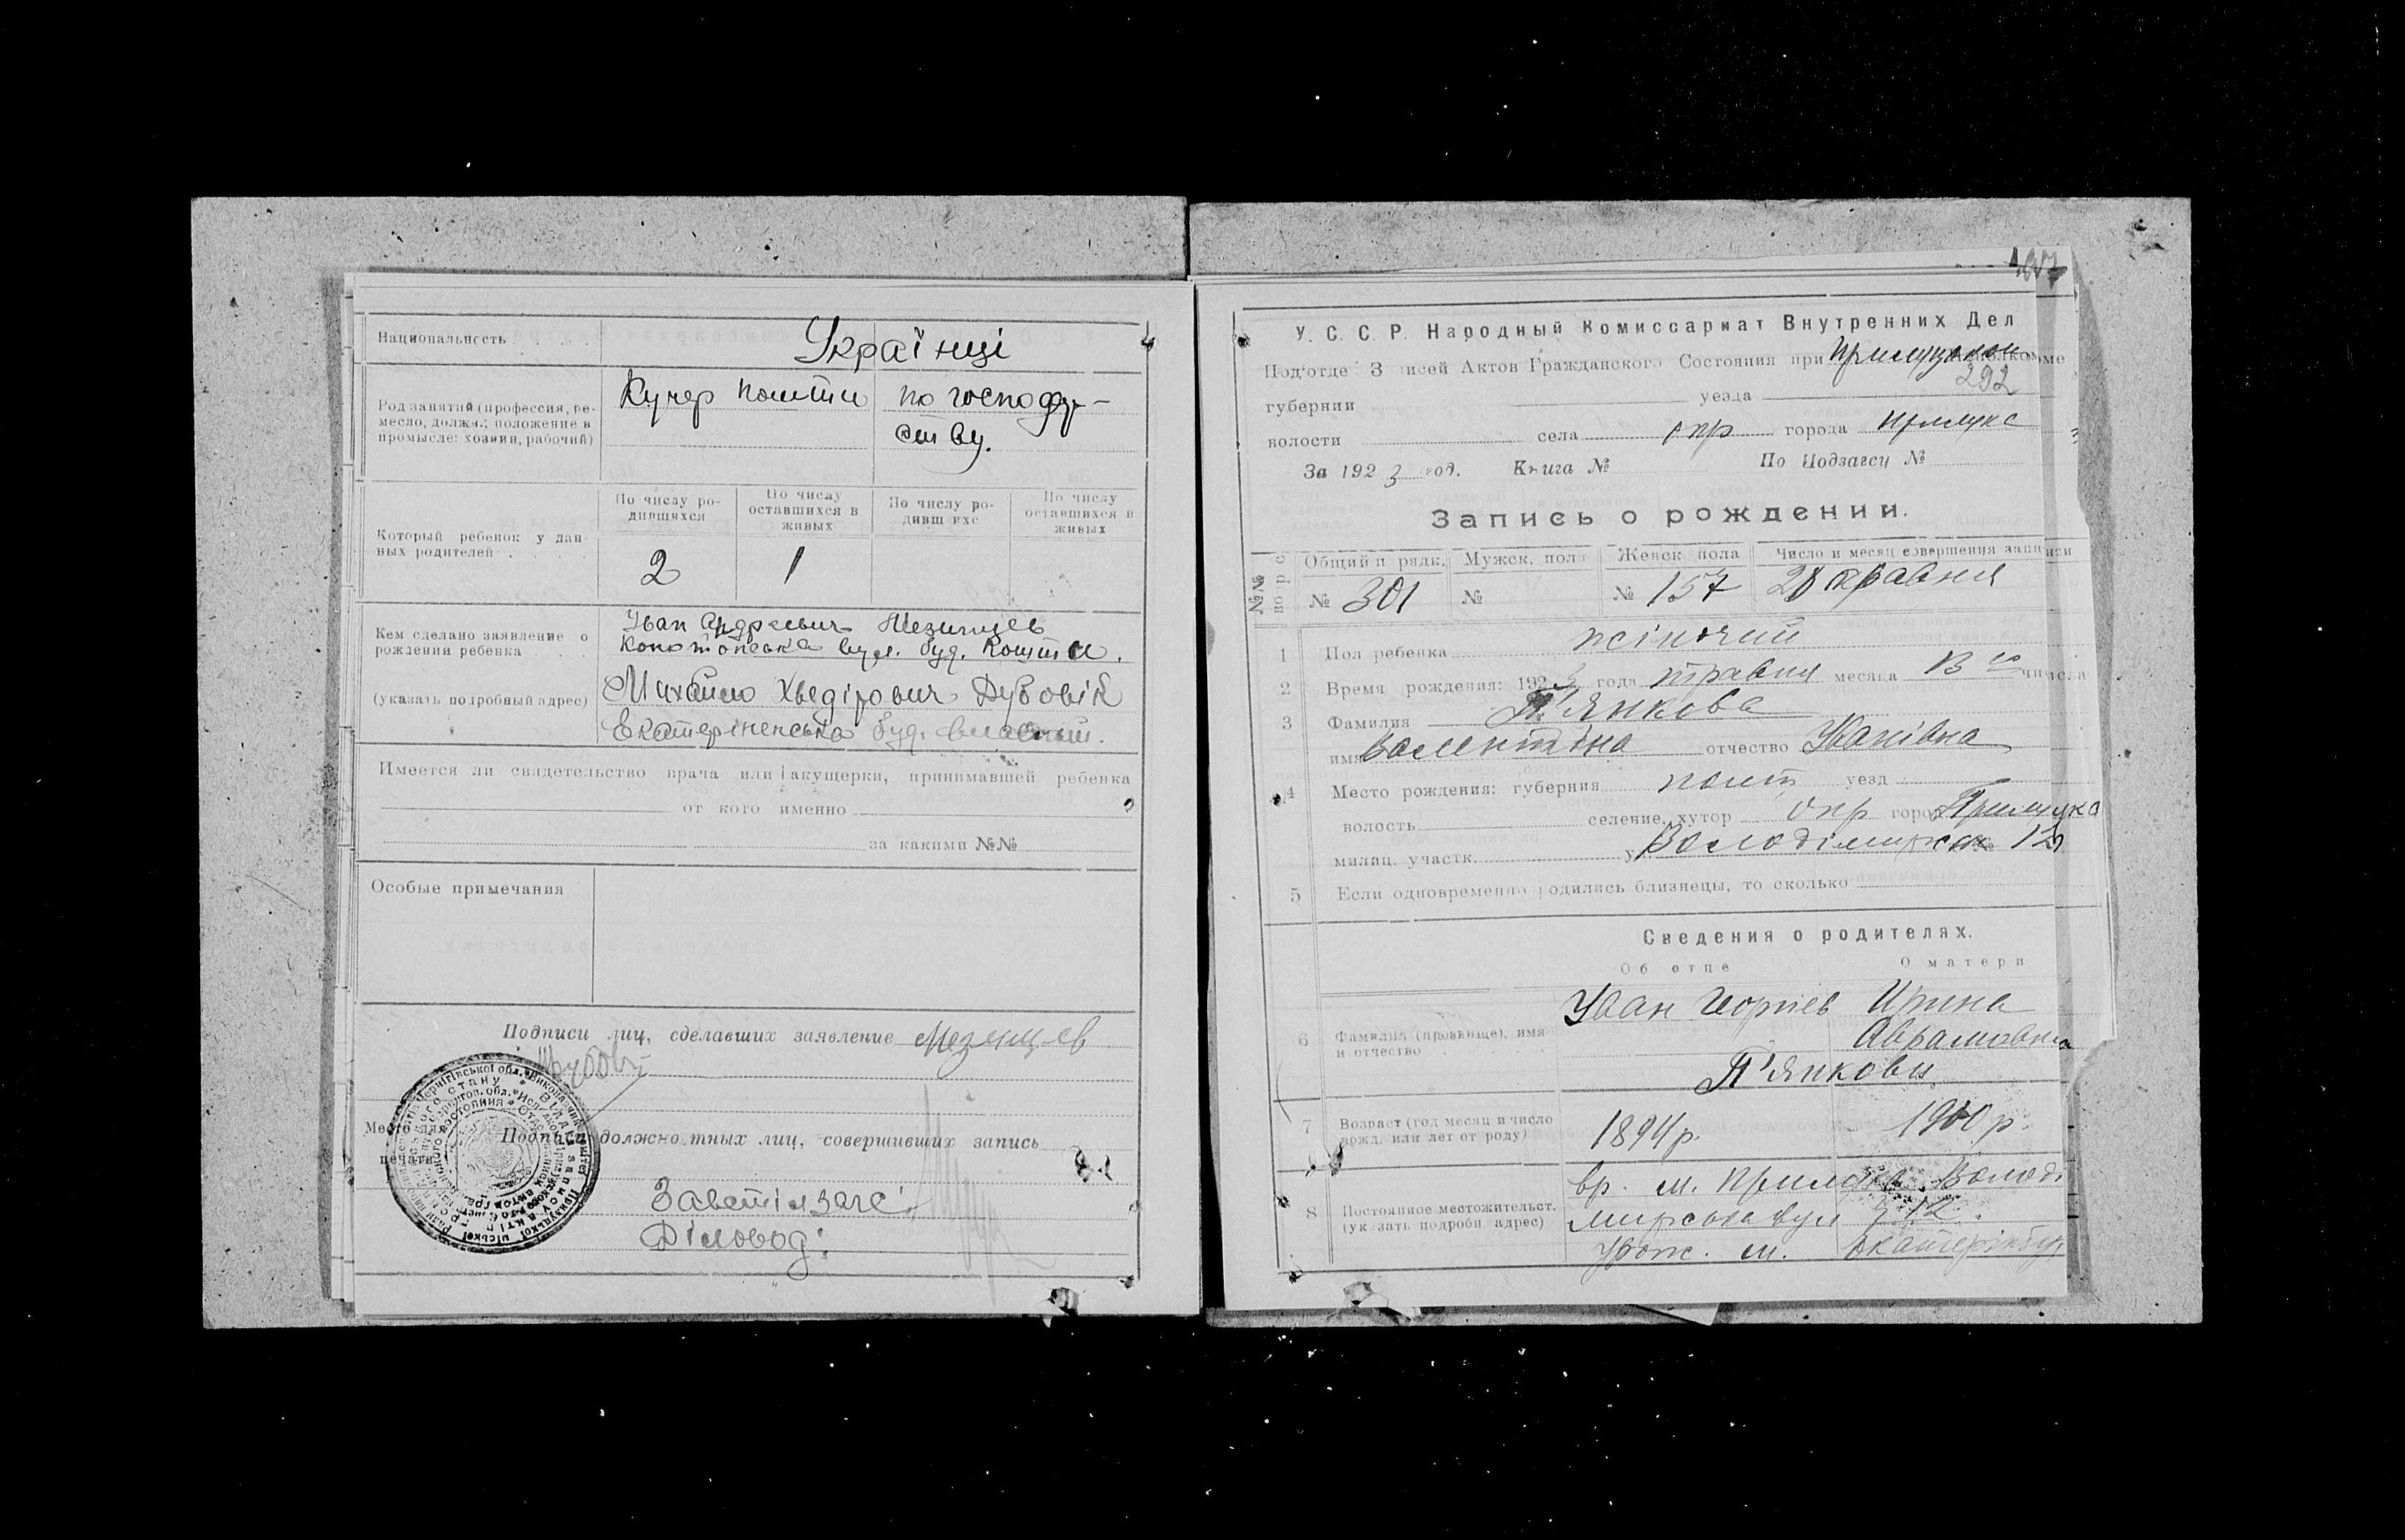 Национальность
Українці
Род занятий (профессия, ре-
месло, должн.; положение в
промысле: хозяин, рабочий)
Кучер пошти
по господар-
ству.
Который ребенок у дан
ных родителей
По числу ро-
дившихся
По числу
оставшихся в
живых
По числу ро-
дивш ихс
По числу
оставшихся в
живых
2
1
Кем сделано заявление о
рождении ребенка
(указать подробный адрес)
Іван Андреевич Мезинцев
Конотопська вул. буд. пошти.
Михайло Хведірович Дубовік
Екатеріненська буд. власний.
Имеется ли свидетельство врача или акушерки, принимавшей ребенка
от кого именно
за какими №№
Особые примечания
Подписи лиц, сделавших заявление Мезинцев
Место для
печати
Подписи должностных лиц, совершивших запись
Діловод:
У. С. С. Р. Народный Комиссариат Внутренних Дел
Под'отде З исей Актов Гражданского Состояния при
292
губернии уезда
волости села окр города Прилука
За 1923 год. Книга № По Подзагсу №
Запись о рождении.
№№
по р с
Общий п рядк. Мужск. пола Женск пола Число и месяц совершения записи
№ 301 № № 157 28 травня
1 Пол ребенка жіночий
2 Время рождения: 1923 года травня месяца числа
3 Фамилия П'янкова
имя Валентіна отчество Іванівна
4 Место рождения: губерния полт уезд
волость селение, хутор окр город Прилука
милиц. участк. у Володімирська № 12
5 Если одновременно родились близнецы, то сколько
Сведения о родителях.
Об отце О матери
6 Фамилия (прозвище), имя
и отчество
Іван Георгіев Ирина
Аврамовна
П'янкови
7 Возраст (год месяц и число
рожд. или лет от роду)
1894 р. 1900 р.
8 Постоянное местожительст.
(указать подробн. адрес)
гр. м. Прилуки Володі
мирська вул 12.
урож. м.